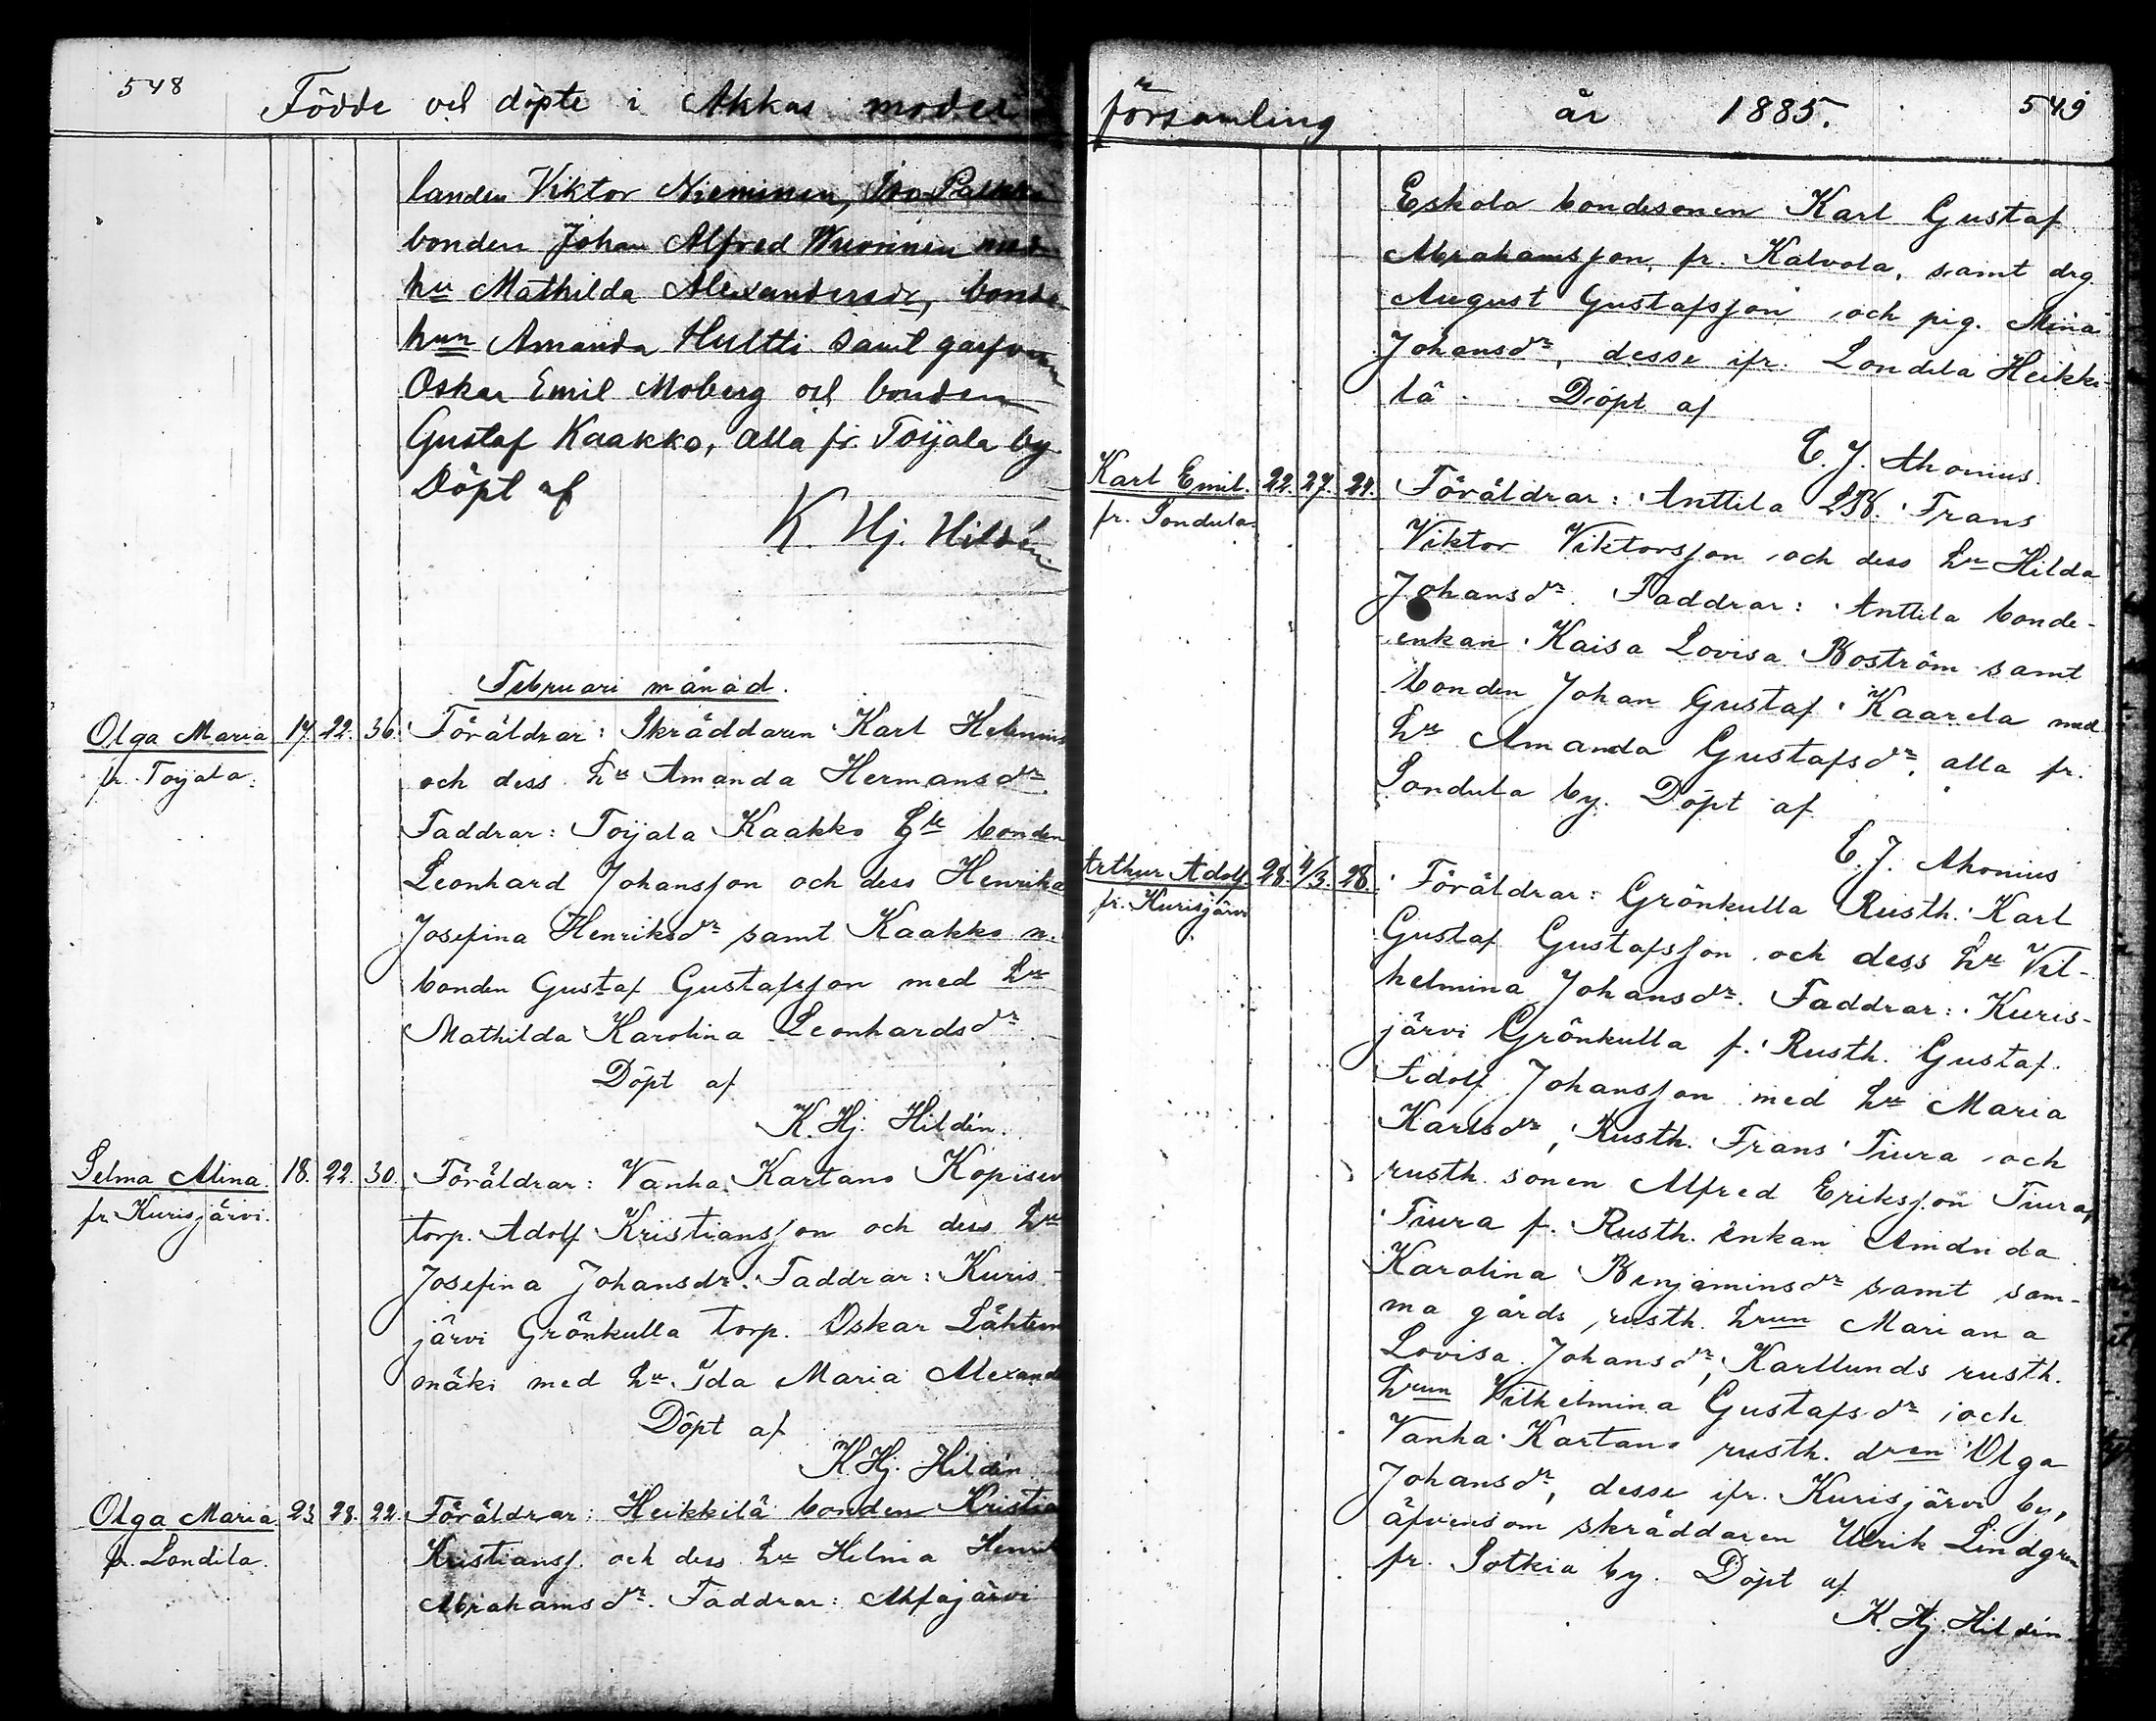 548
Födde och döpte i Akkas moder
landen Viktor Nieminen, Iso Pakka
bonden Johan Alfred Wuorinen med
hu Mathilda Alexandersdr, bonde
hun Amanda Hultti samt garfvaren
Oskar Emil Moberg och bonden
Gustaf Kaakko, alla fr. Toijala by.
Döpt af
K. Hj. Hildén
Februari månad.
Olga Maria 17. 22. 36. Föräldrar: Skräddaren Karl Helenius
fr. Toijala. och dess hu Amanda Hermansdr.
Faddrar: Toijala Kaakko bonden
Leonhard Johansson och dess Henrika
Josefina Henriksdr samt Kaakko n.
bonden Gustaf Gustafsson med hu
Mathilda Karolina Leonhardsdr
Döpt af
K. Hj. Hildén.
Selma Alina. 18. 22. 30. Föräldrar: Vanha Kartano Kopisev
fr. Kurisjärvi. torp. Adolf Kristiansson och dess hu
Josefina Johansdr. Faddrar: Kuris-
järvi Grönkulla torp. Oskar Lähteen
mäki med hu Ida Maria Alexand
Döpt af
K. Hj. Hildén
Olga Maria 23. 28. 22. Föräldrar: Heikkilä bonden Kristian
fr. Londila. Kristianss. och dess hu Helma Henrik
Abrahamsdr. Faddrar: Ahfajärvi
församling år 1885. 549
Eskola bondesonen Karl Gustaf
Abrahamsson, fr. Kalvola, samt drg.
August Gustafsson och pig. Mina
Johansdr, desse ifr. Londila Heikki-
lä. Döpt af
C. J. Ahonius.
Karl Emil. 22. 27. 24. Föräldrar: Anttila LB. Frans
fr. Sondula. Viktor Viktorsson och dess hu Hilda
Johansdr. Faddrar: Anttila bonde-
enkan Kaisa Lovisa Boström samt
bonden Johan Gustaf Kaarela med
hu Amanda Gustafsdr, alla fr.
Sondula by. Döpt af
C. J. Ahonius
Arthur Adolf 28. 4/3. 28. Föräldrar: Grönkulla Rusth. Karl
fr. Kurisjärvi Gustaf Gustafsson och dess hu Vil-
helmina Johansdr. Faddrar: Kuris-
järvi Grönkulla f. Rusth. Gustaf
Adolf Johansson med hu Maria
Karlsdr, Rusth. Frans Tiura och
rusth. sonen Alfred Eriksson Tiura,
Tiura f. Rusth. enkan Amanda
Karolina Benjaminsdr samt sam-
ma gårds rusth. hrun Mariana
Lovisa Johansdr, Karllunds rusth.
hrun Vilhelmina Gustafsdr och
Vanha Kartano rusth. dren Olga
Johansdr, desse ifr. Kurisjärvi by,
äfvensom skräddaren Ulrik Lindgren
fr. Sotkia by. Döpt af
K. Hj. Hildén